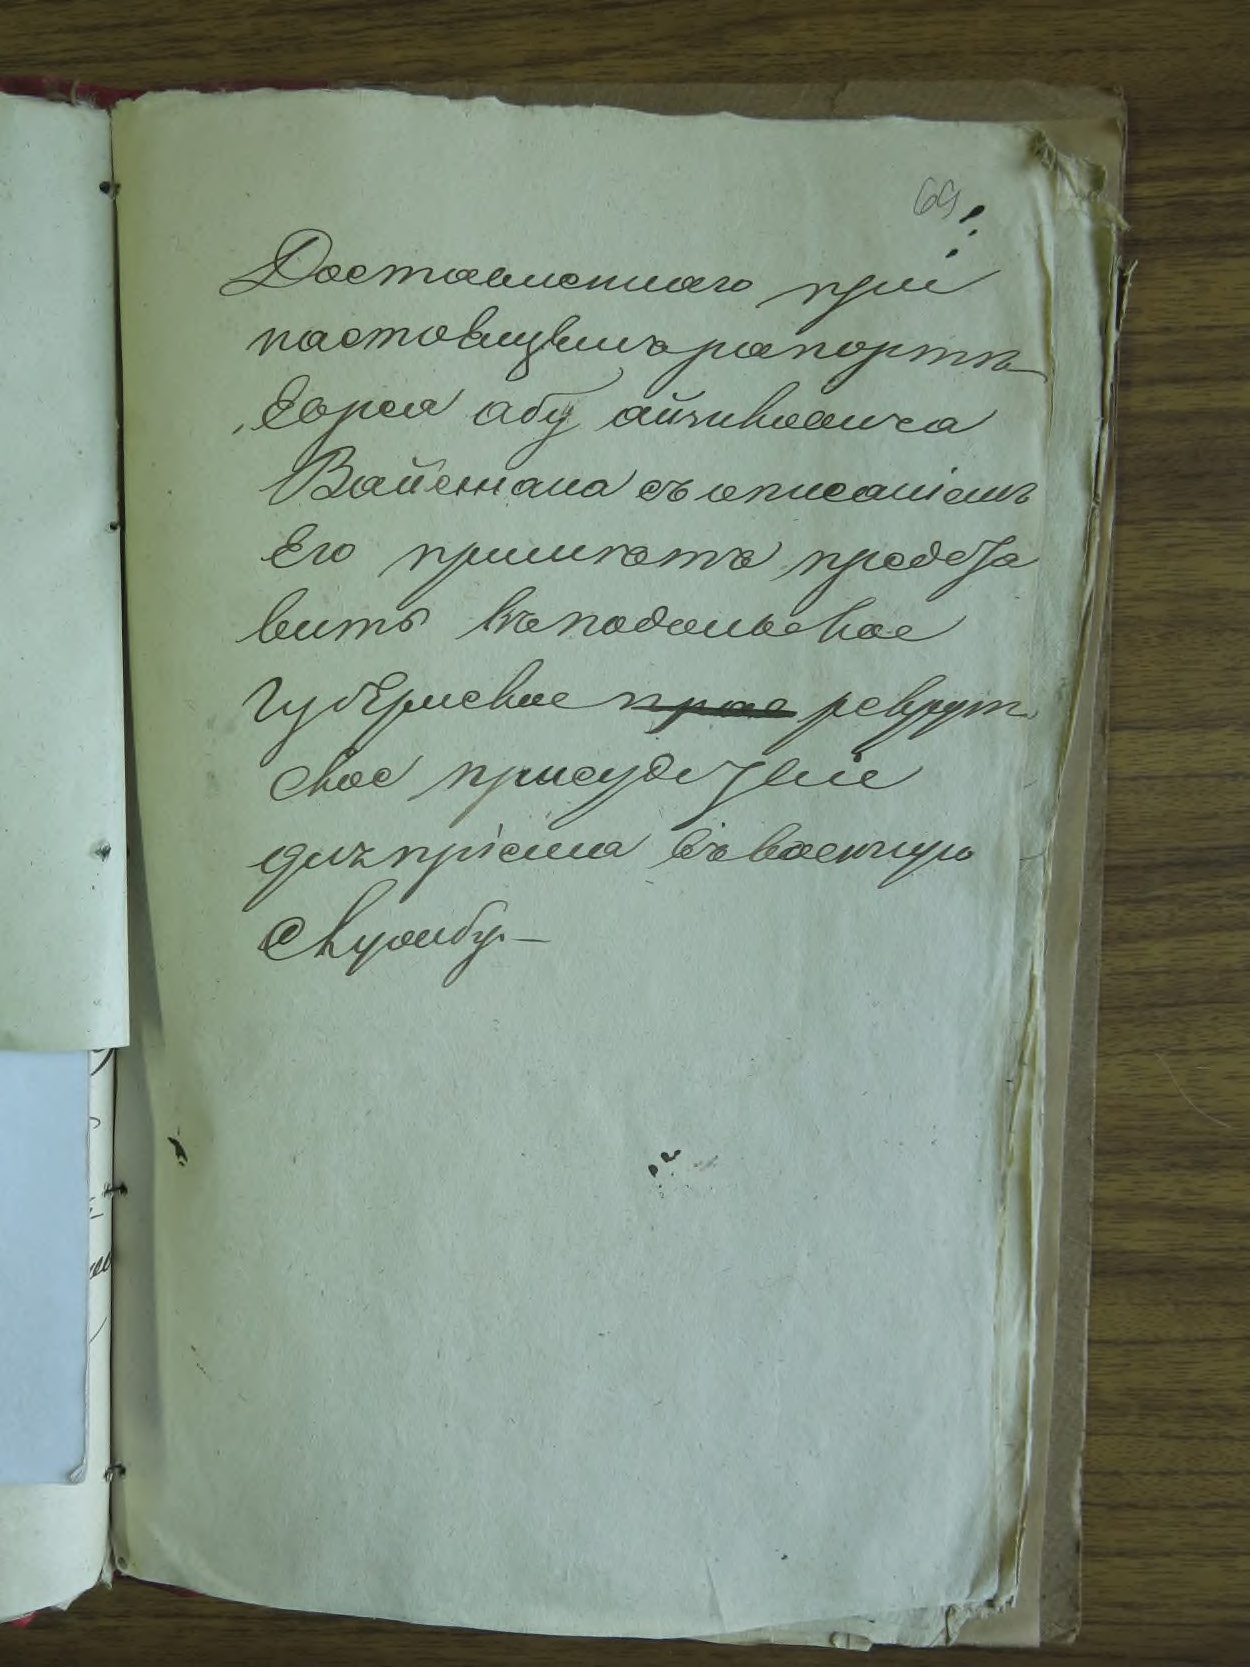 69
Доставленнаго при
настовщимъ рапортѣ
Еврея Абу Айзиковича
Вайсмана съ описаніемъ
Его примѣтъ предста
вить въ подольское
Губернское прое рекрут
ское присудствіе
для пріема въ военную
Службу. —